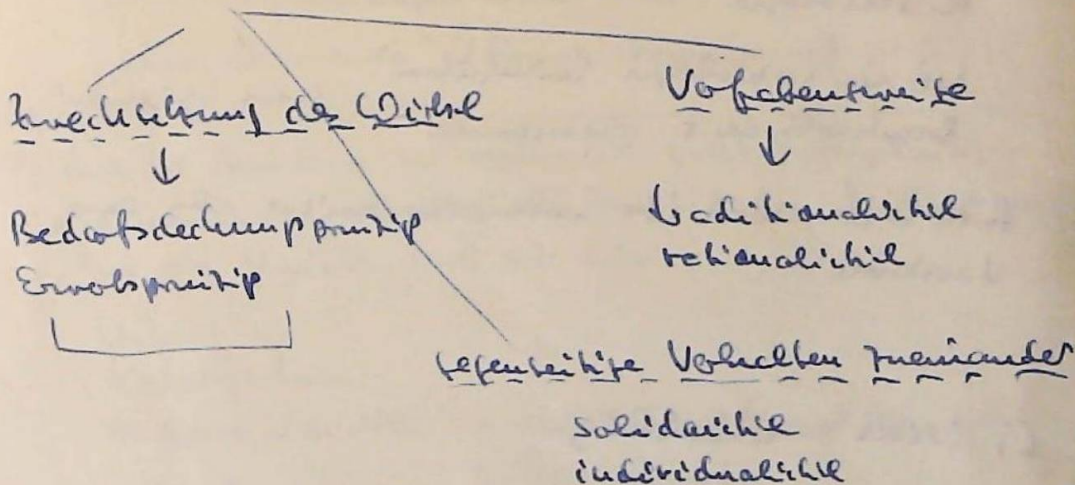 Zwecksetzung der Wirtsch
Bedarfsdeckungsprinzip
Erwerbsprinzip
Verfahrensweise
traditionalistisch
rationalistisch
gegenseitige Verhalten zueinander
solidaristisch
individualistisch